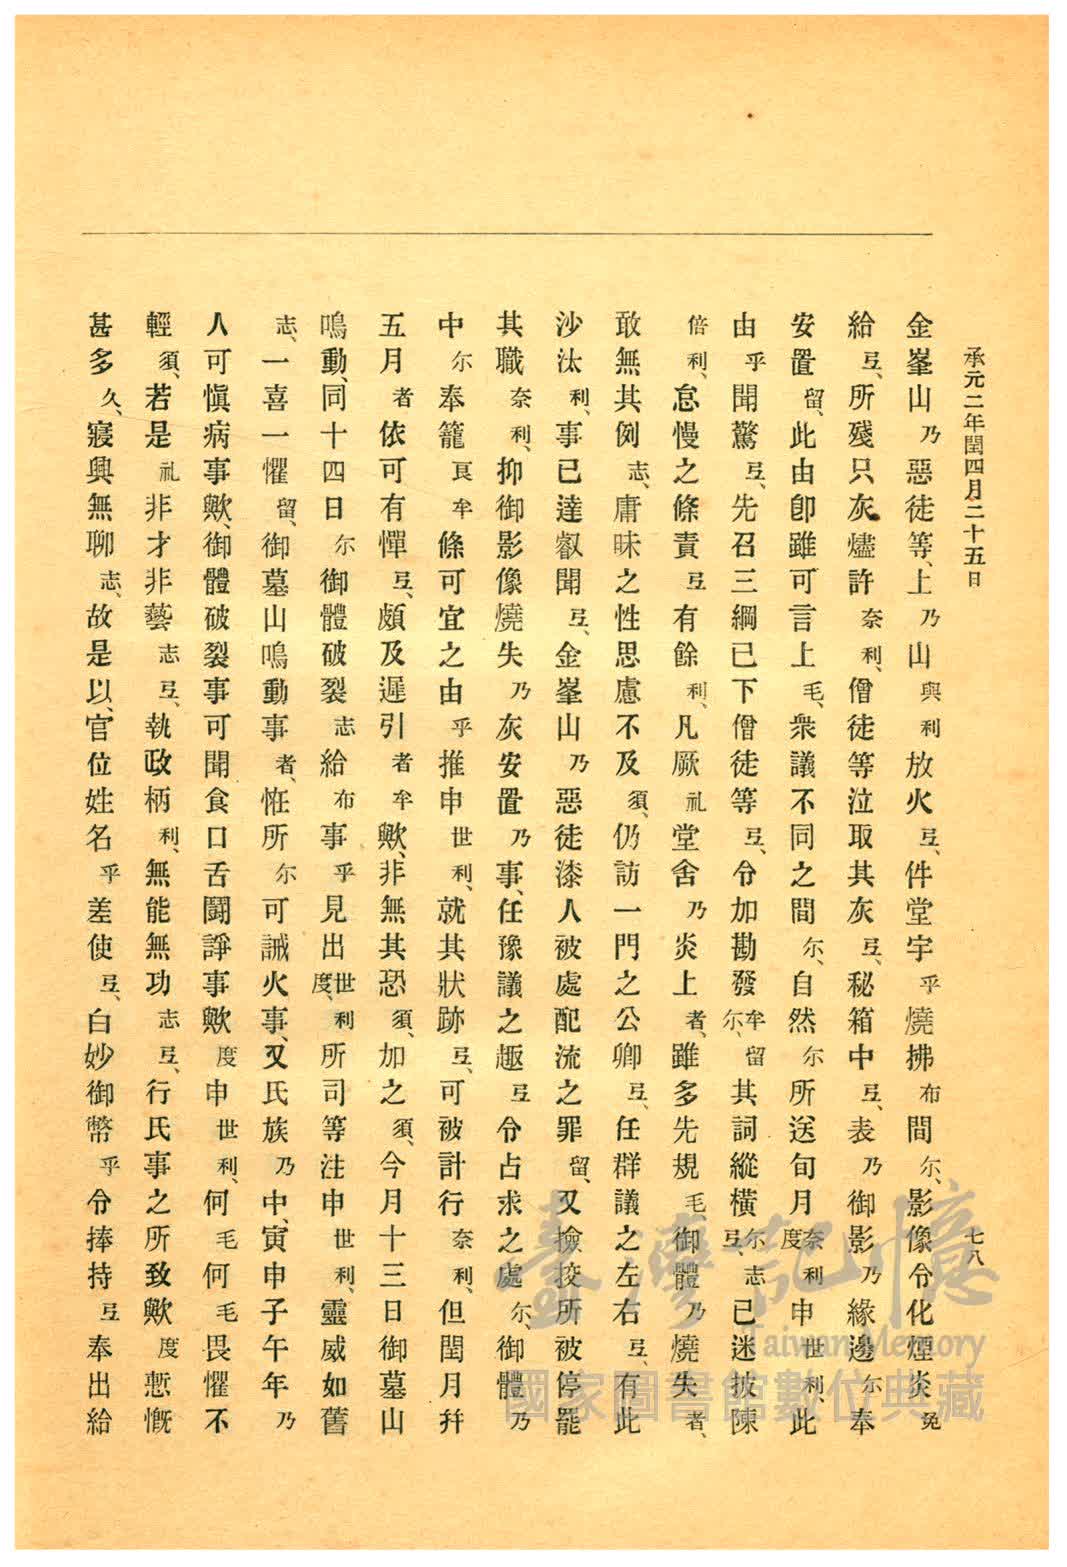 承元二年閏四月二十五日
七八
金峯山乃惡徒等、上乃山與利放火弖、件堂宇乎燒拂布間尔、影像令化煙炎免
給弖、所殘只灰燼許奈利、僧徒等泣取其灰弖、秘箱中弖、表乃御影乃緣邊尔奉
安置留、此由卽雖可言上毛、衆議不同之間尔、自然尔所送旬月奈利度申世利、此
由乎聞驚弖、先召三綱已下僧徒等弖、令加勘發牟留尔、其詞縱橫尔志弖、已迷披陳
倍利、怠慢之條責弖有餘利、凡厥礼堂舍乃炎上者、雖多先規毛、御體乃燒失者、
敢無其例志、庸昧之性思慮不及須、仍訪一門之公卿弖、任群議之左右弖、有此
沙汰利、事已達叡聞弖、金峯山乃惡徒漆人被處配流之罪留、又撿挍所被停罷
其職奈利、抑御影像燒失乃灰安置乃事、任豫議之趣弖令占求之處尔、御體乃
中尔奉籠良牟條可宜之由乎推申世利、就其狀跡弖、可被計行奈利、但閏月幷
五月者依可有憚弖、頗及遲引者牟歟、非無其恐須、加之須、今月十三日御墓山
鳴動、同十四日尔御體破裂志給布事乎見出世利度、所司等注申世利、靈威如舊
志、一喜一懼留、御墓山鳴動事者、恠所尔可誡火事、又氏族乃中、寅申子午年乃
人可愼病事歟、御體破裂事可聞食口舌鬪諍事歟度申世利、何毛何毛畏懼不
輕須、若是礼非才非藝志弖、執政柄利、無能無功志弖、行氏事之所致歟度慙慨
甚多久、寢興無聊志、故是以、官位姓名乎差使弖、白妙御幣乎令捧持弖奉出給
臺灣記憶
Taiwan Memory
國家圖書館數位典藏